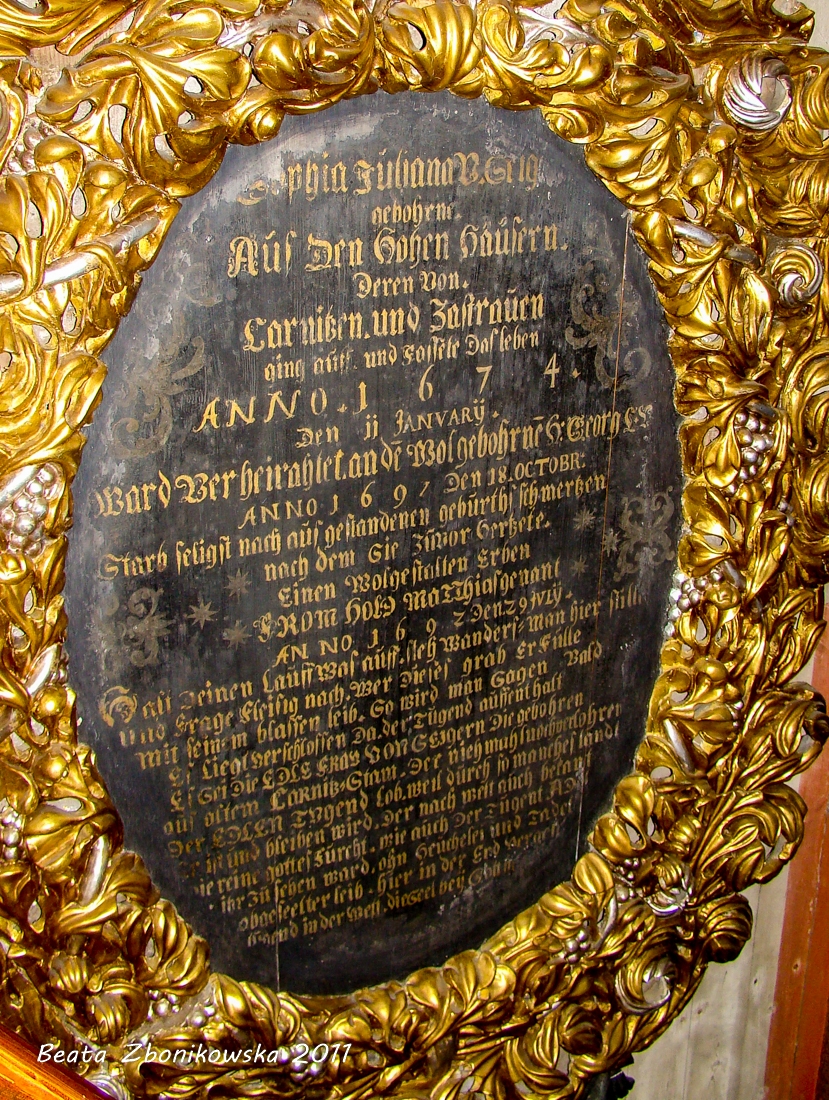 Sophia Juliana V. Seig
gebohrne.
Aus Den Hohen Häusern.
Deren Von.
Carnitzen. und Zastrauen
ging auff. und Fassete Das leben
ANNO. 1 6 7 4.
Den 11 JANVARÿ.
Ward Verheirahtet. an dē Wolgebohrnē H. Georg
ANNO 1 6 9 1 Den 18. OCTOBR.
Starb seligst nach aus gestandenen geburths schmertzen
nach dem Sie Zuvor Hertzete.
Einen Wolgestalten Erben
FROMHOLD MATThIasgenant
ANNO. 1 6 9 2 Den 29 IVLŸ.
Halt Deinen Lauff Was auff. sich Wanders-Man hier still
Und Frage Fleisig nach. Wer Dieses grab Erfülle
Mit seinem blassen leib. So wird man Sagen Bald
Es Liegt verschlossen Da. der Tugend auffenthalt
Es Sei die EDLE FRAV VON Seigern Die gebohren
aus altem Carnitz-Stam. Der niehmahl noch verlohren
Der EDLEN TVgend lob. weil durch so manches landt
ist und bleiben wird. Der nach welt auch bekant
die reine gottes Fürcht. wie auch Der Tugent
ihr Zu sehen ward. ohn Heuchelei und
abgeseelter leib. hier in der Erd
Tugend in der Welt. die seel bey
Beata Zbonikowska 2011